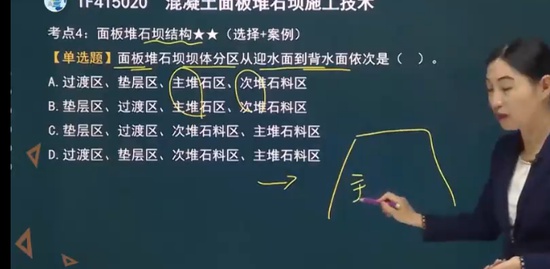 1F415020 混凝土面板堆石坝施工技术
考点4：面板堆石坝结构★★（选择+案例）
【单选题】面板堆石坝坝体分区从迎水面到背水面依次是（ ）。
A.过渡区、垫层区、主堆石区、次堆石料区
B.垫层区、过渡区、主堆石区、次堆石料区
C.垫层区、过渡区、次堆石料区、主堆石料区
D.过渡区、垫层区、次堆石料区、主堆石料区
主